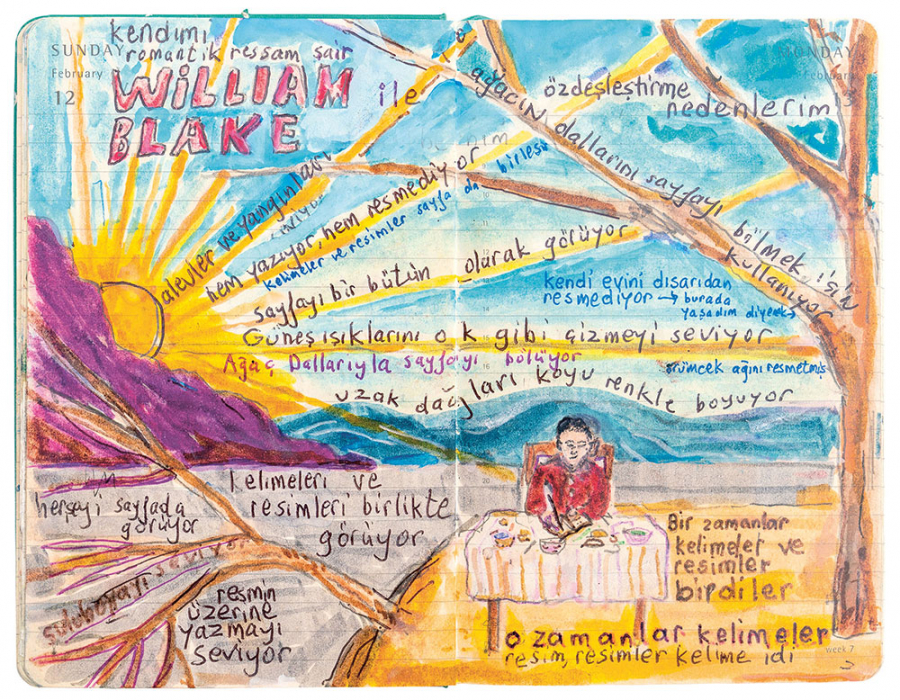 kendimi
SUNDAY
romantik ressam şair
February
12
WiLLIAM
BLAKE
ile
özdeşleştirme
nedenlerim
ağacın dallarını sayfayı
bölmek için
kullanıyor
alevler ve yangınları
hem yazıyor, hem resmediyor
kelimeler ve resimler sayfa da birleşir
sayfayı bir bütün olarak görüyor
kendi evini dışarıdan
resmediyor → burada
yaşadım diyerek
Güneş ışıklarını ok gibi çizmeyi seviyor
Ağaç Dallarıyla sayfayı bölüyor
örümcek ağını resmetmiş
uzak dağları koyu renkle boyuyor
herşeyi sayfada
görüyor
kelimeleri ve
resimleri birlikte
görüyor
suluboyayı seviyor
resmin
üzerine
yazmayı
seviyor
Bir zamanlar
kelimeler ve
resimler
birdiler
o zamanlar kelimeler
resim, resimler kelime idi
week 7